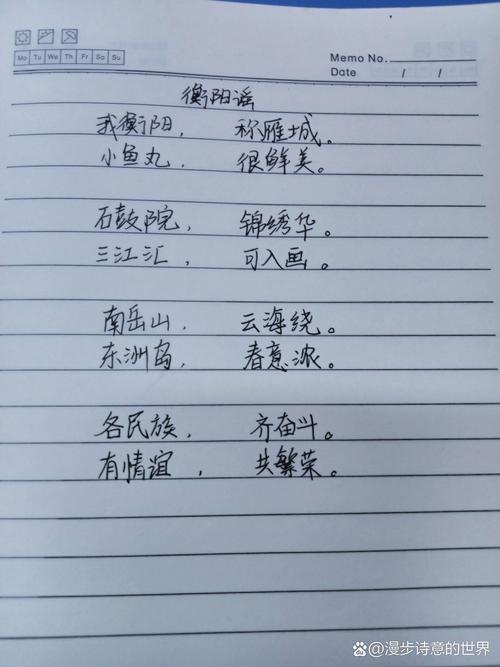 Mo Tu We Th Fr Sa Su
Memo No.
Date / /
衡阳谣
我衡阳， 称雁城。
小鱼丸， 很鲜美。
石鼓院， 锦绣华。
三江汇， 可入画。
南岳山， 云海绕。
东洲岛， 春意浓。
各民族， 齐奋斗。
有情谊， 共繁荣。
@漫步诗意的世界